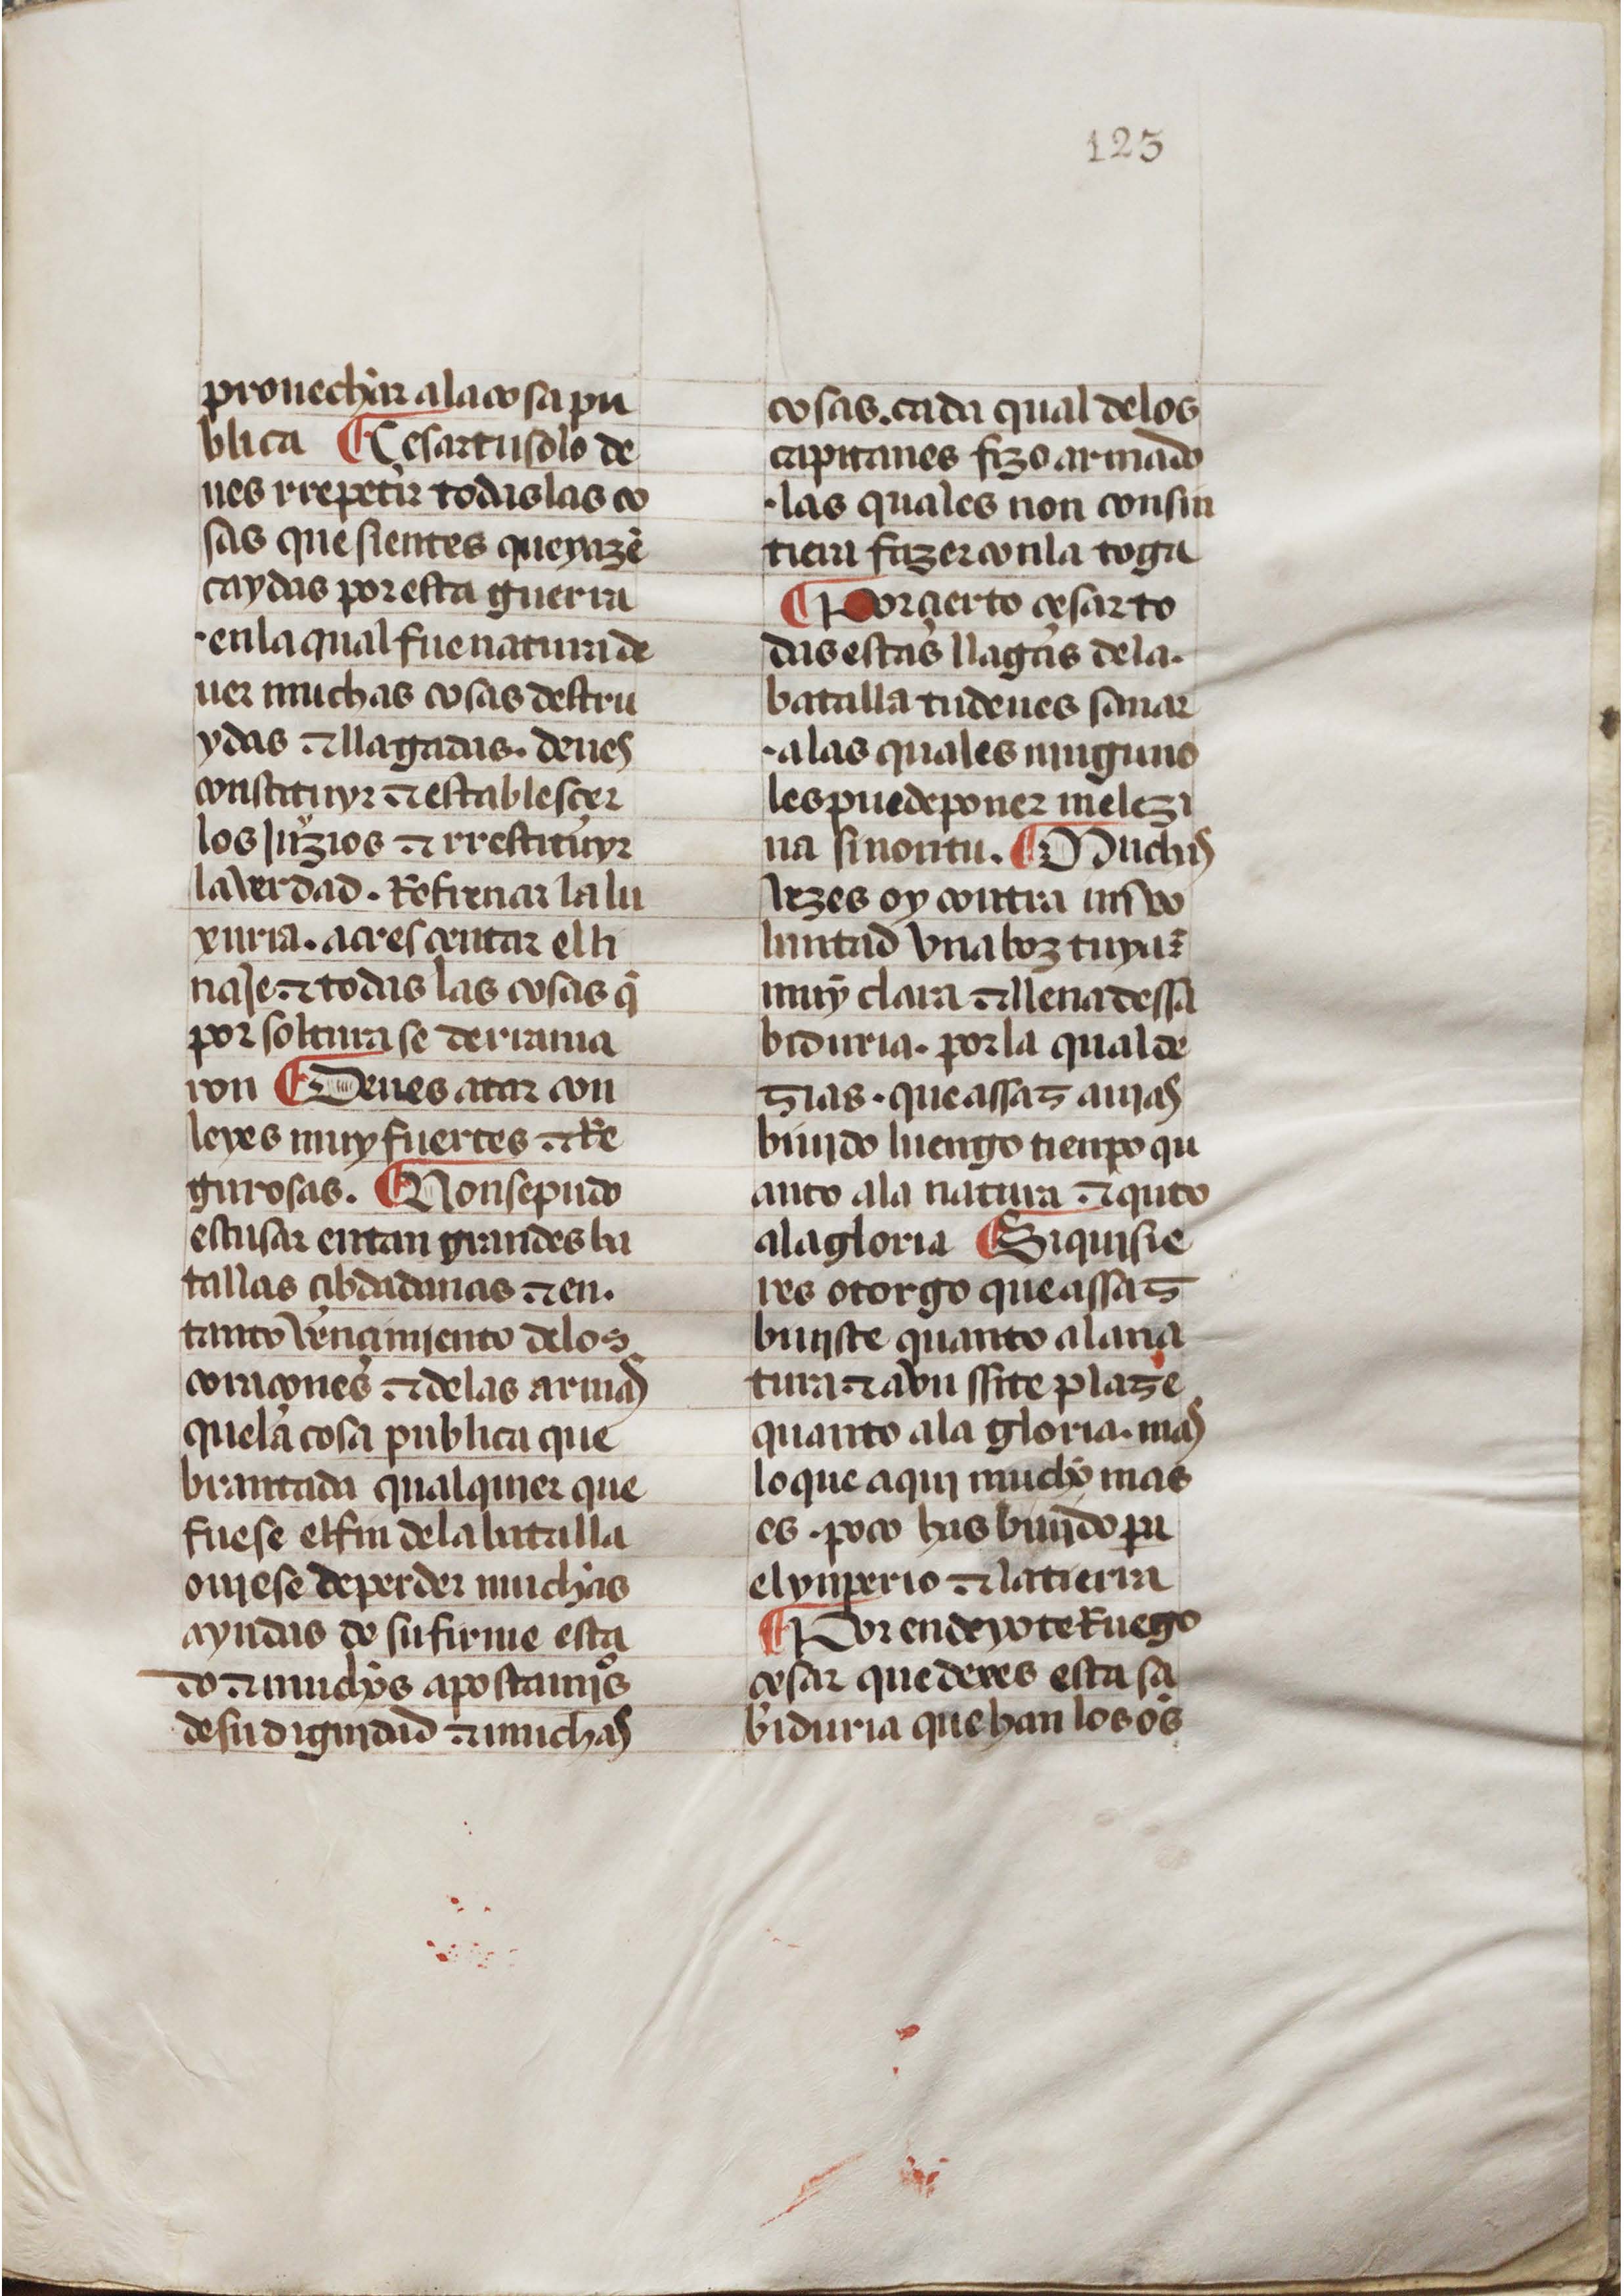 123
prouechar ala cosa pu
blica ¶ Cesar tu solo de
ues rrepetir todas las co
sas que sientes que yazē
caydas por esta guerra
·en la qual fue natura de
uer muchas cosas destru
ydas ⁊ llagadas. deues
constituyr ⁊ establesçer
los juyzios ⁊ rrestituyr
la verdad. Refrenar la lu
xuria. acresçentar el li
naje ⁊ todas las cosas q̄
por soltura se derrama
ron ¶ Deues atar con
leyes muy fuertes ⁊ Re
gurosas. ¶ Non se pudo
escusar en tan grandes ba
tallas çibdadanas ⁊ en.
tanto vençimiento delos
coraçones ⁊ delas armas
que la cosa publica que
brantada qualquier que
fuese el fin dela batalla
ouiese de perder muchas
ayudas de su firme esta
do ⁊ muchos apostamjos
de su dignidad ⁊ muchas
cosas. cada qual delos
capitanes fizo armado
·las quales non consin
tiera fazer con la toga
¶ Por çierto cesar to
das estas llagas dela.
batalla tu deues sanar
·alas quales ninguno
les puede poner melezi
na sinon tu. ¶ Muchas
vezes oy contra mj vo
luntad vna boz tuya
muy clara ⁊ llena de ssa
biduria. por la qual de
zias. que assaz aujas
biujdo luengo tienpo qu
anto ala natura ⁊ quāto
ala gloria ¶ Si quisie
res otorgo que assaz
biujste quanto ala na
tura ⁊ avn ssi te plaze
quanto ala gloria. mas
lo que aquj mucho mas
es. poco has biujdo pa
el ynperio ⁊ la tierra
¶ Por ende yo te Ruego
cesar que dexes esta sa
biduria que han los os